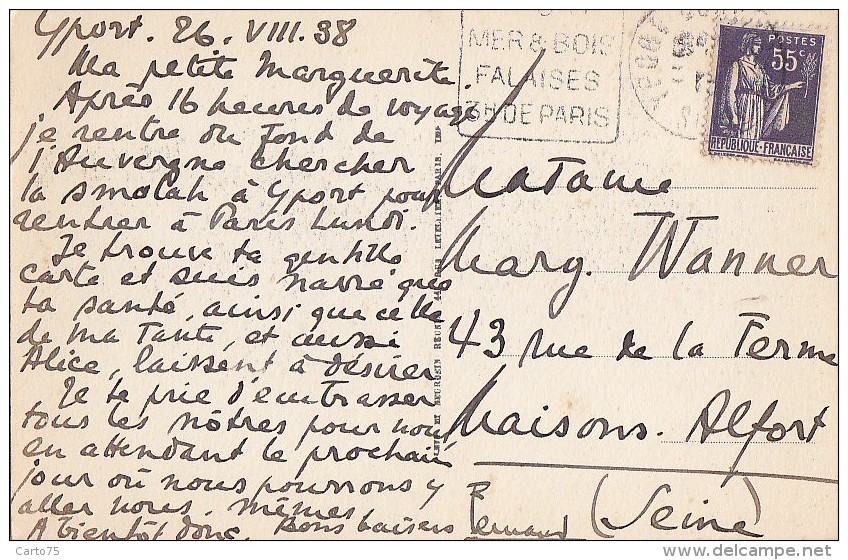 Yport. 26. VIII. 38
Ma petite Marguerite.
Après 16 heures de voyage
je rentre du fond de
l'Auvergne chercher
la smalah à Yport pour
rentrer à Paris Lundi.
Je trouve ta gentille
carte et suis navré que
ta santé, ainsi que celle
de ma Tante, et aussi
Alice, laissent à désirer
Je te prie d'embrasser
tous les nôtres pour nous
en attendant le prochain
jour où nous pourrons y
aller nous-mêmes.
A bientôt donc. Bons baisers Fernand
MER & BOIS
FALAISES
3H DE PARIS
POSTES
55c
REPUBLIQUE·FRANÇAISE
Madame
Marg. Wanner
43 rue de la Ferme
Maisons-Alfort
(Seine)
Carto75
delcampe.net